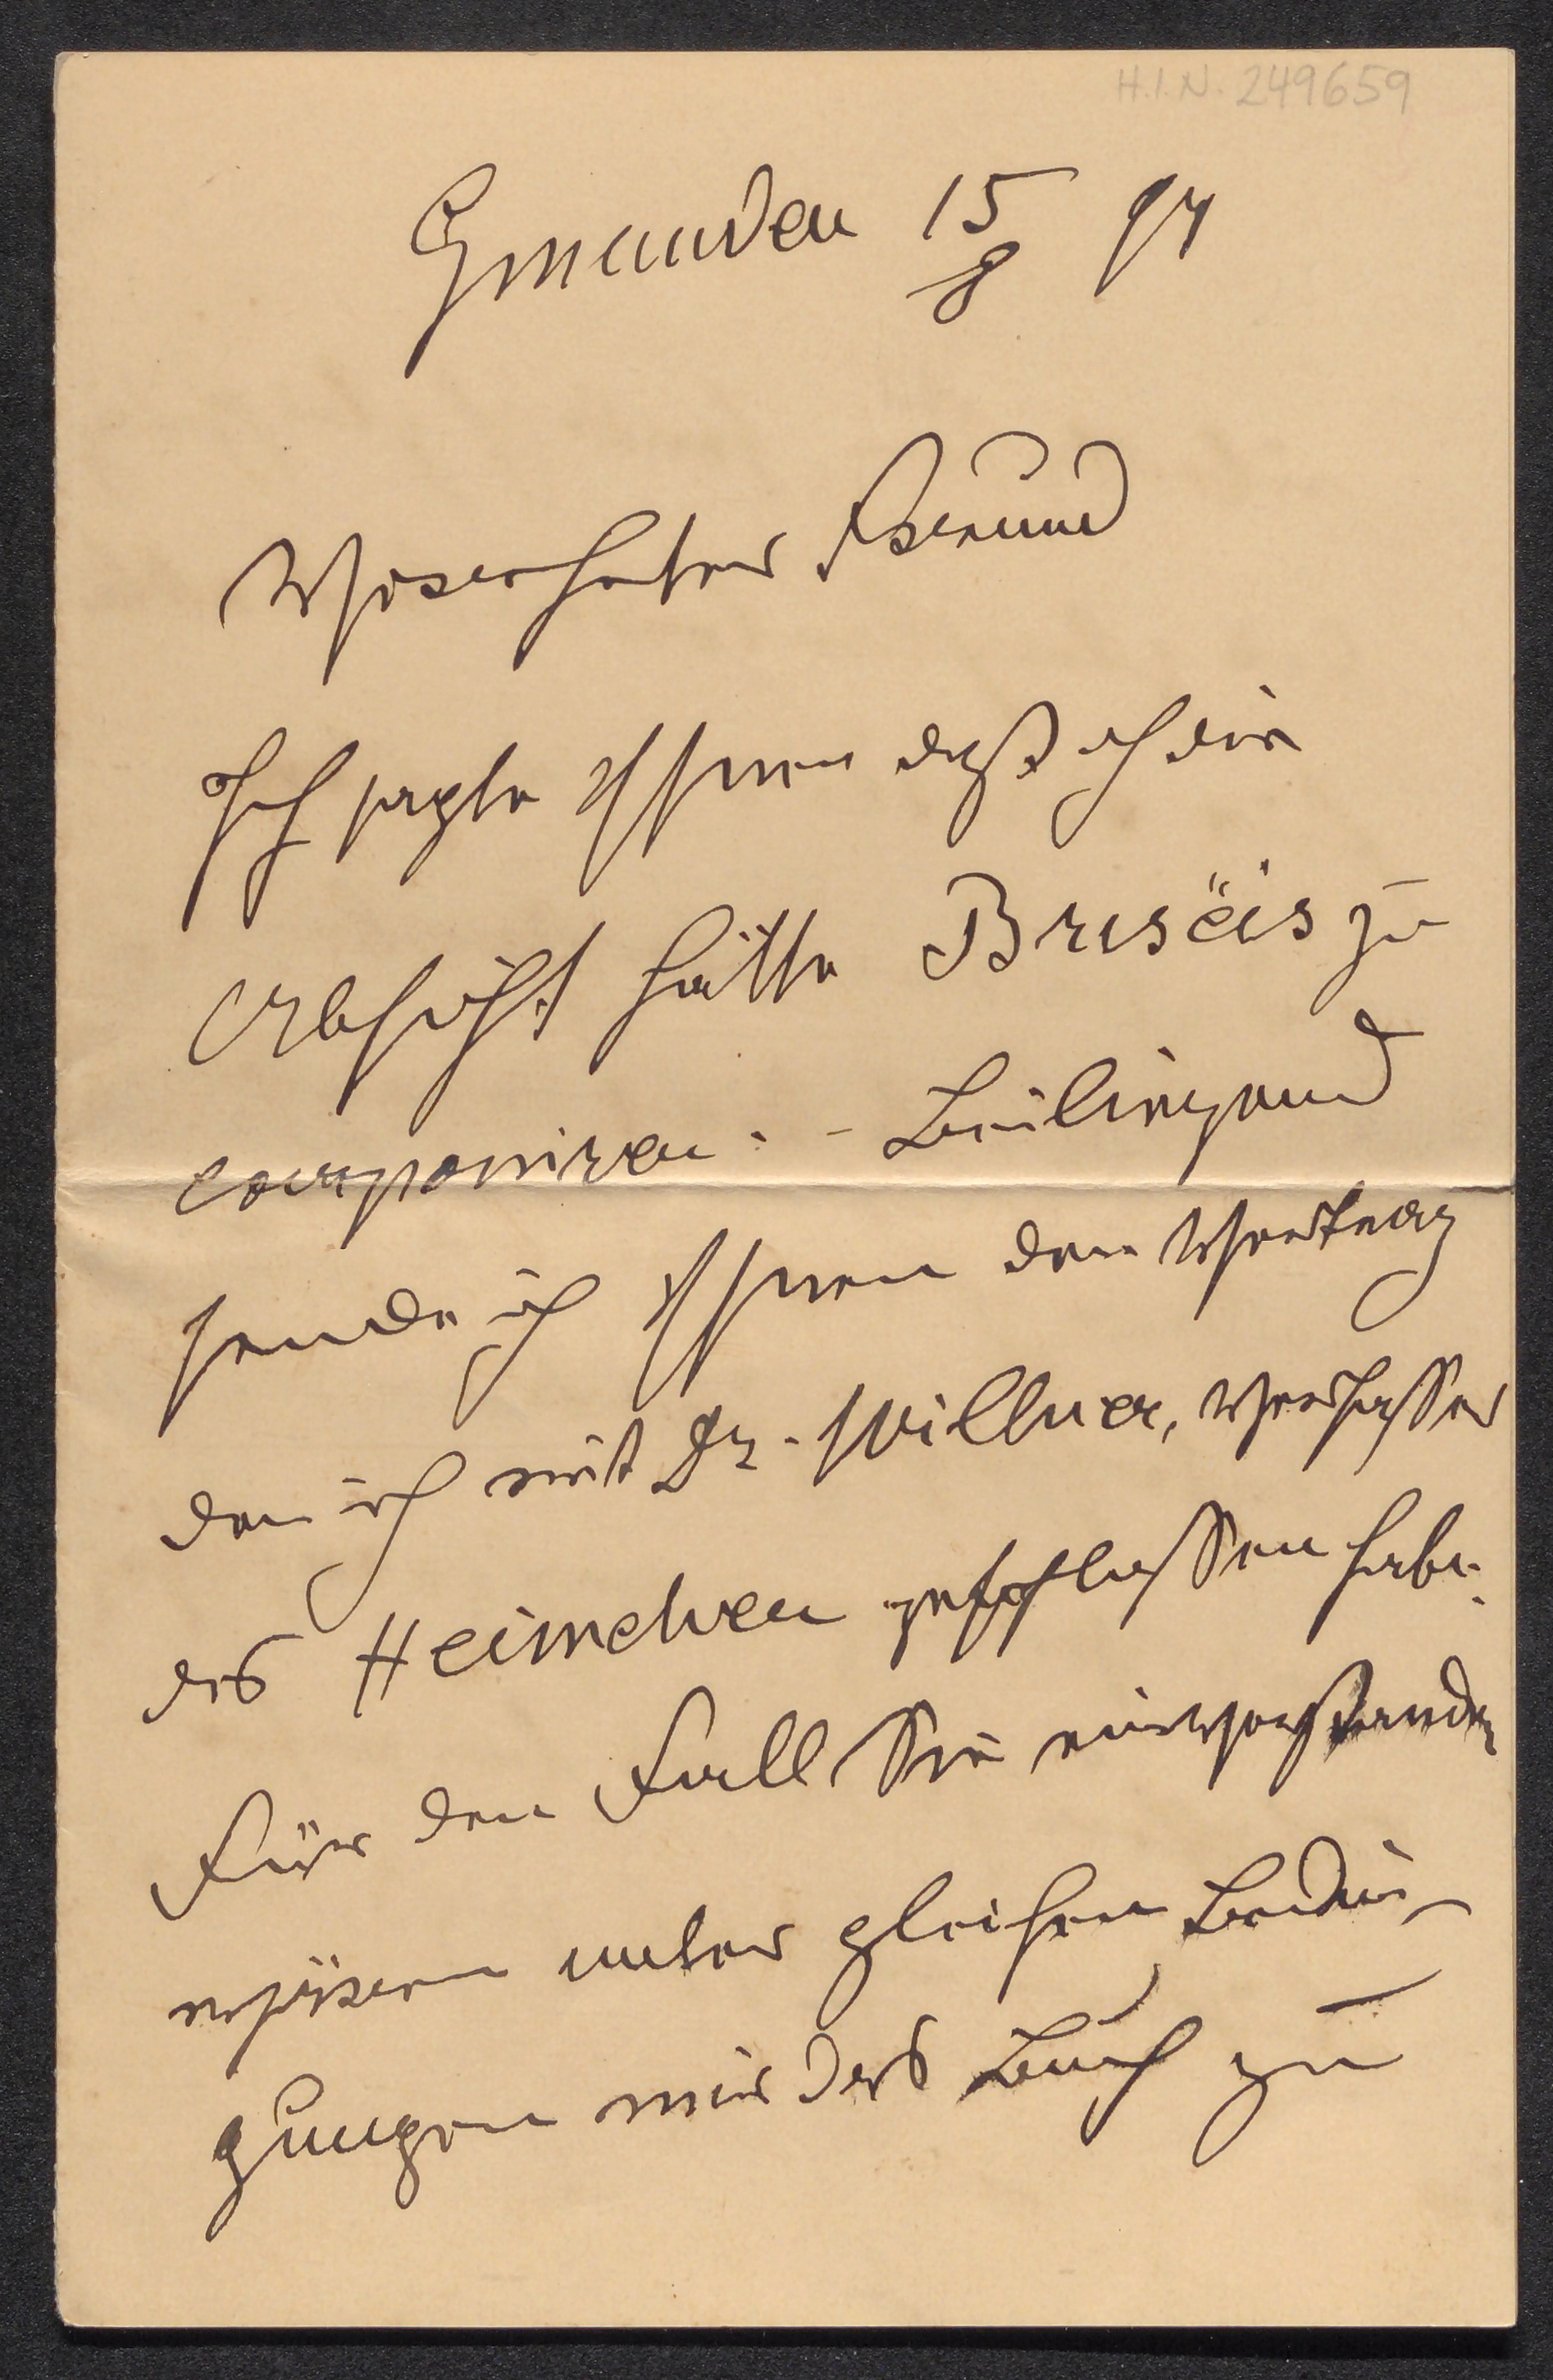 H.I.N. 249659
Gmunden 15/8 97
Verehrter Freund
Ich sagte Ihnen daß ich die
Absicht hätte Briseïs zu
componiren. - Beiliegend
sende ich Ihnen den Vertrag
den ich mit Dr. Willner, Verfasser
des Heimchen geschlossen habe.
Für den Fall Sie einverstanden
wären unter gleichen Bedin-
gungen mir das Buch zu